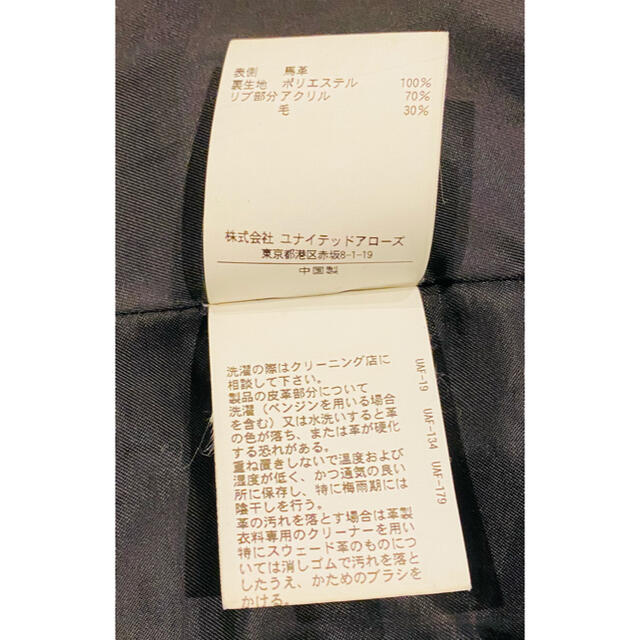 表側 馬革
裏生地 ポリエステル 100%
リブ部分アクリル 70%
毛 30%
株式会社 ユナイテッドアローズ
東京都港区赤坂8-1-19
中国製
洗濯の際はクリーニング店に
相談して下さい。
製品の皮革部分について
洗濯(ベンジンを用いる場合
を含む)又は水洗いすると革
の色が落ち、または革が硬化
する恐れがある。
重ね置きしないで温度および
湿度が低く、かつ通気の良い
所に保存し、特に梅雨期には
陰干しを行う。
革の汚れを落とす場合は革製
衣料専用のクリーナーを用い
特にスウェード革のものにつ
いては消しゴムで汚れを落と
したうえ、かためのブラシを
かける。
UAF-19 UAF-134 UAF-179